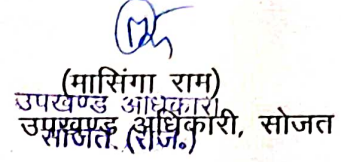 (मासिंगा राम)
उपखण्ड अधिकारी
उपखण्ड अधिकारी, सोजत
सोजत (राज.)